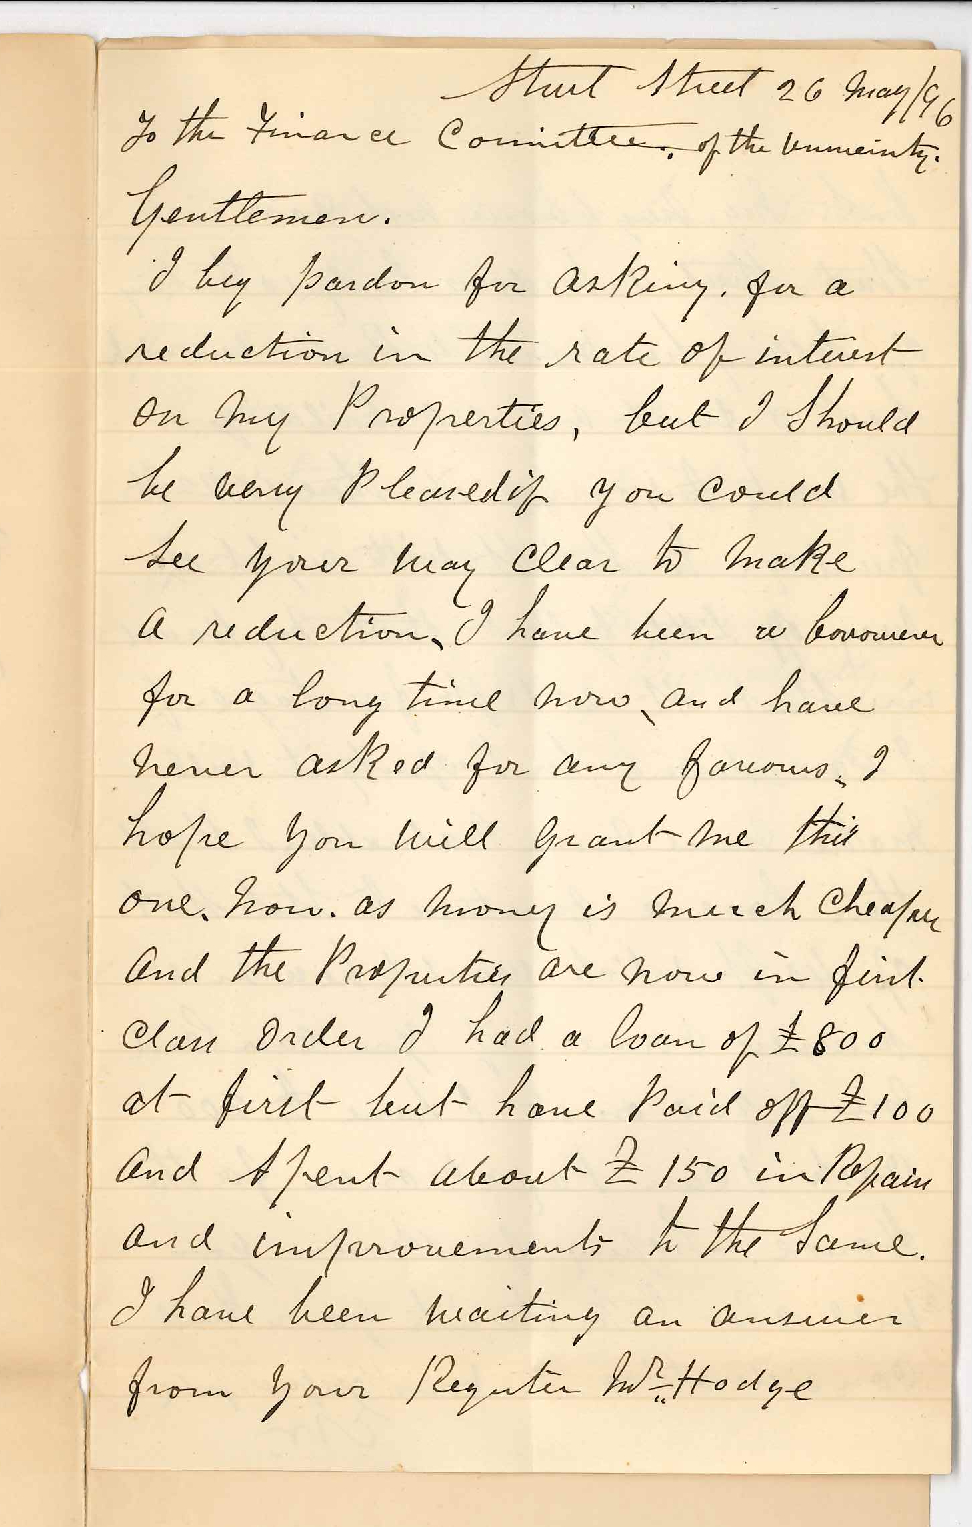 Sturt Street 26 May/96
To the Finance Committee. of the Unvneinty.
Gentlemen.
I beg pardon for asking. for a
reduction in the rate of interest
on my Properties, but I Should
be very Pleased if you could
see your way Clear to make
a reduction, I have been a borrower
for a long time now, and have
never asked for any favours, I
hope you will grant me this
one. now. as money is much Cheaper
and the Properties are now in first
Class Order I had a loan of £800
at first but have Paid off £100
and Spent about £150 in Repairs
and improvements to the Same.
I have been waiting an answer
from your Register Mr. Hodge